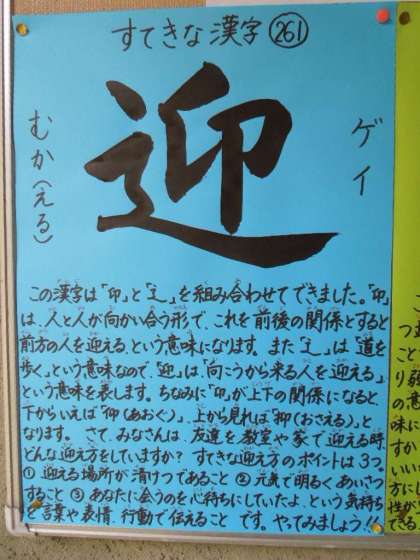 すてきな漢字 261
迎
ゲイ
むか(える)
この漢字は「卬」と「辶」を組み合わせてできました。「卬」
は、人と人が向かい合う形で、これを前後の関係とすると
前方の人を迎える、という意味になります。また「辶」は「道を
歩く」という意味なので、「迎」は「向こうから来る人を迎える」
という意味を表します。ちなみに「卬」が上下の関係になると、
下からいえば「仰(あおぐ)」、上から見れば「抑(おさえる)」と
なります。 さて、みなさんは、友達を教室や家で迎える時、
どんな迎え方をしていますか? すてきな迎え方のポイントは3つ。
① 迎える場所が清けつであること ② 元気で明るくあいさつ
すること ③ あなたに会うのを心待ちにしていたよ、という気持ち
を言葉や表情、行動で伝えること です。やってみましょう!!